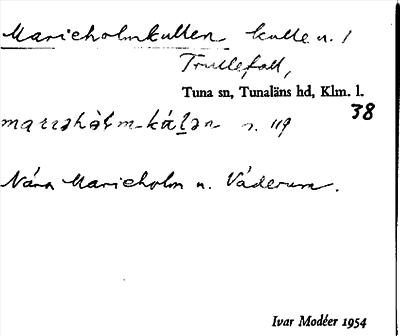 Marieholmkullen kulle n. 1
Trullefall,
Tuna sn, Tunaläns hd, Klm. l.
38
n. 119
Nära Marieholm u. Väderum.
Ivar Modéer 1954